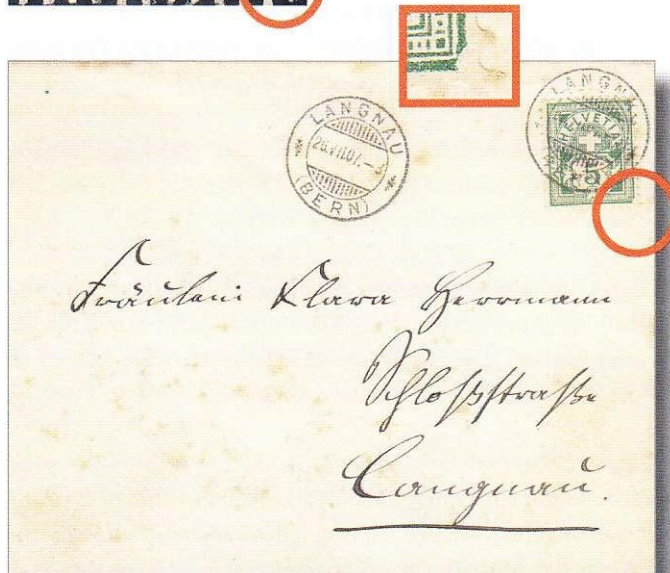 LANGNAU
26.VII.07.-3
(BERN)
LANGNAU
HELVETIA
5
Fräulein Klara Herrmann
Schloßstraße
Langnau.